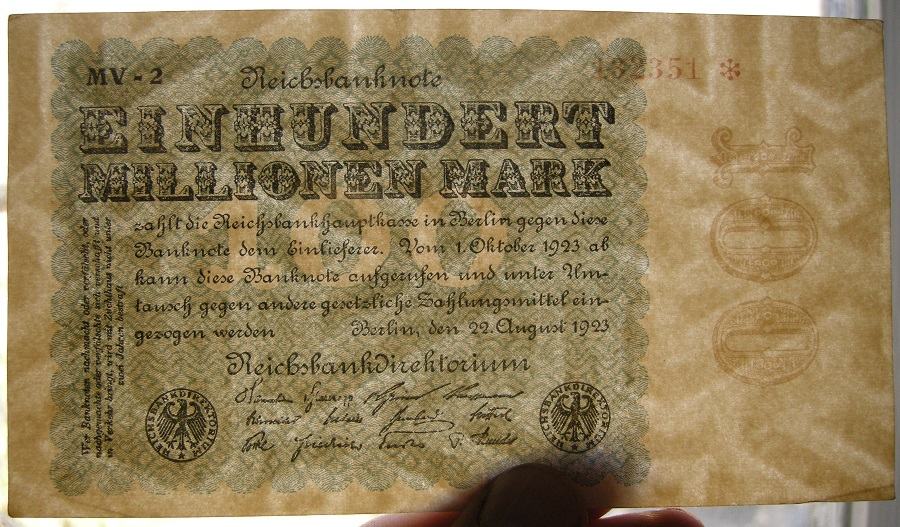 MV - 2
Reichsbanknote
192351 *
EINHUNDERT
MILLIONEN MARK
zahlt die Reichsbankhauptkasse in Berlin gegen diese
Banknote dem Einlieferer. Vom 1. Oktober 1923 ab
kann diese Banknote aufgerufen und unter Um-
tausch gegen andere gesetzliche Zahlungsmittel ein-
gezogen werden
Berlin, den 22. August 1923
Reichsbankdirektorium
REICHSBANKDIREKTORIUM
REICHSBANKDIREKTORIUM
Wer Banknoten nachmacht oder verfälscht, oder
nachgemachte oder verfälschte sich verschafft und
in Verkehr bringt, wird mit Zuchthaus nicht unter
zwei Jahren bestraft
100